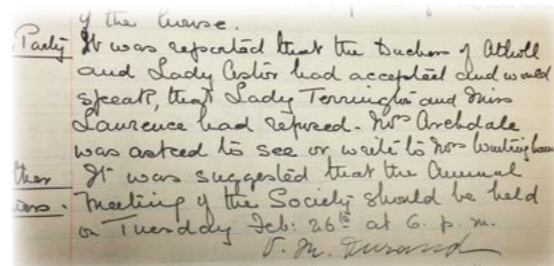 of the house.
Party It was reported that the Duchess of Atholl
and Lady Astor had accepted and would
speak, that Lady Terrington and Miss
Laurence had refused. Mrs Archdale
was asked to see or write to Mrs Wintringham
ther It was suggested that the Annual
Meeting of the Society should be held
on Tuesday Feb: 26th at 6. p.m.